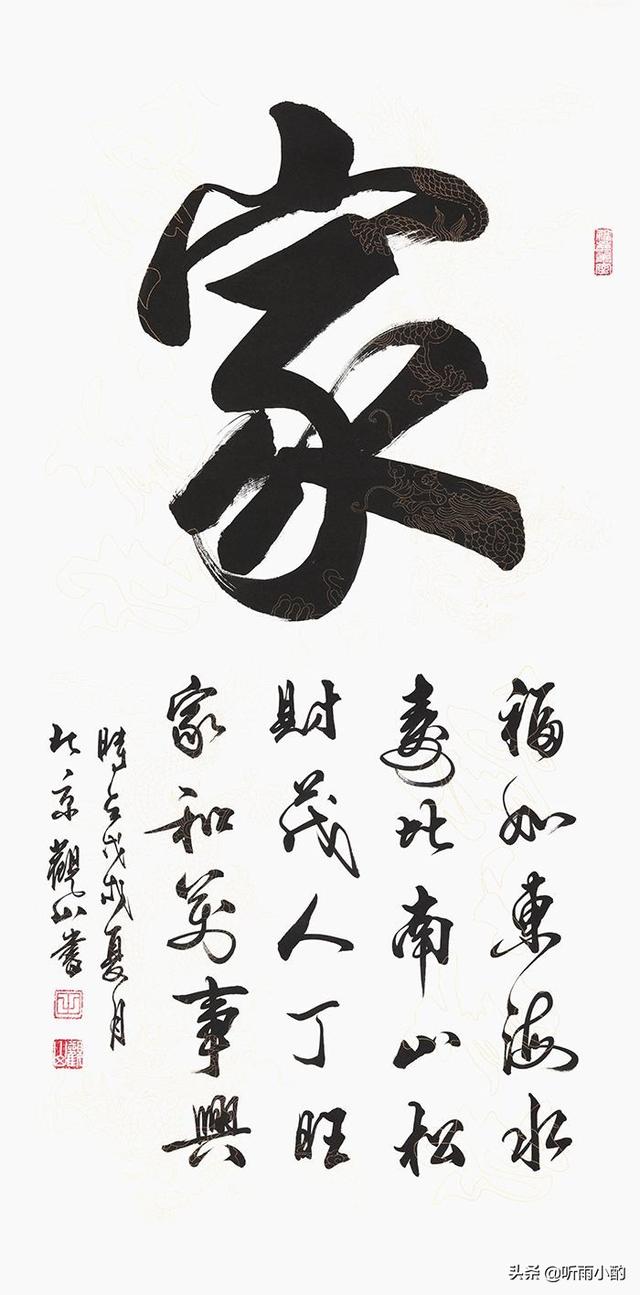 家
福如東海水
壽比南山松
財茂人丁旺
家和萬事興
時戊戌夏月
北京觀山書
觀山
头条 @听雨小酌